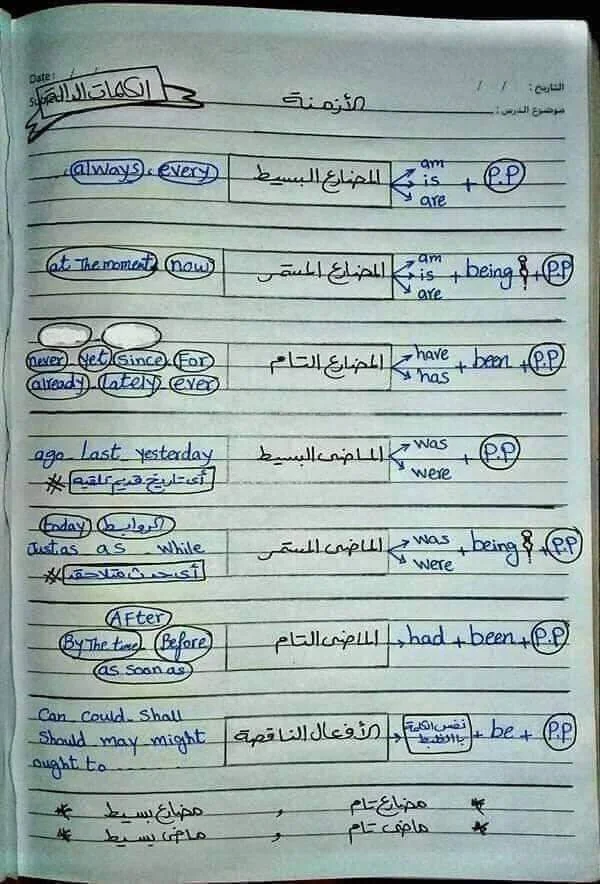 Date: / /
التاريخ : / /
الكلمات الدالة
الأزمنة
موضوع الدرس :
always , every المضارع البسيط am is are + P.P
at The moment , now المضارع المستمر am is are + being + P.P
never , yet , since , For المضارع التام have has + been + P.P
already , lately , ever
ago _ Last _ yesterday الماضى البسيط was were + P.P
* أى تاريخ قديم تلاقيه
today الروابط
Just as _ as _ while الماضى المستمر was were + being + P.P
* أى حدث متلاحقة
AFter
By The time , Before الماضى التام had + been + P.P
as soon as
Can _ could _ Shall
Should _ may _ might الأفعال الناقصة نفس الكلمة بالظبط + be + P.P
ought to
* مضارع تام , مضارع بسيط *
* ماضى تام , ماضى بسيط *